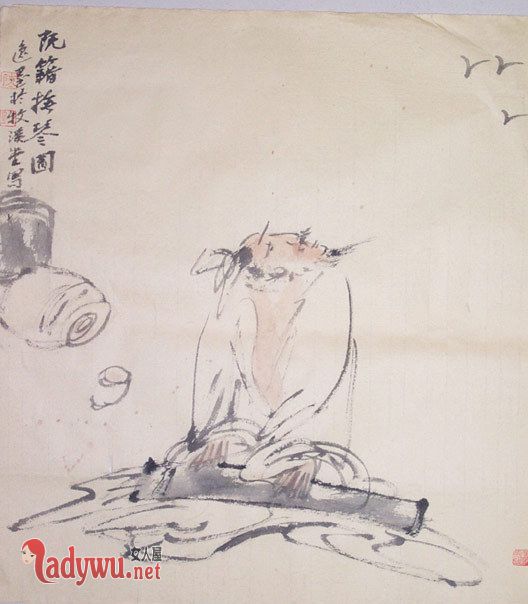 阮籍撫琴圖
逸墨於牧溪堂写
女人屋
ladywu.net